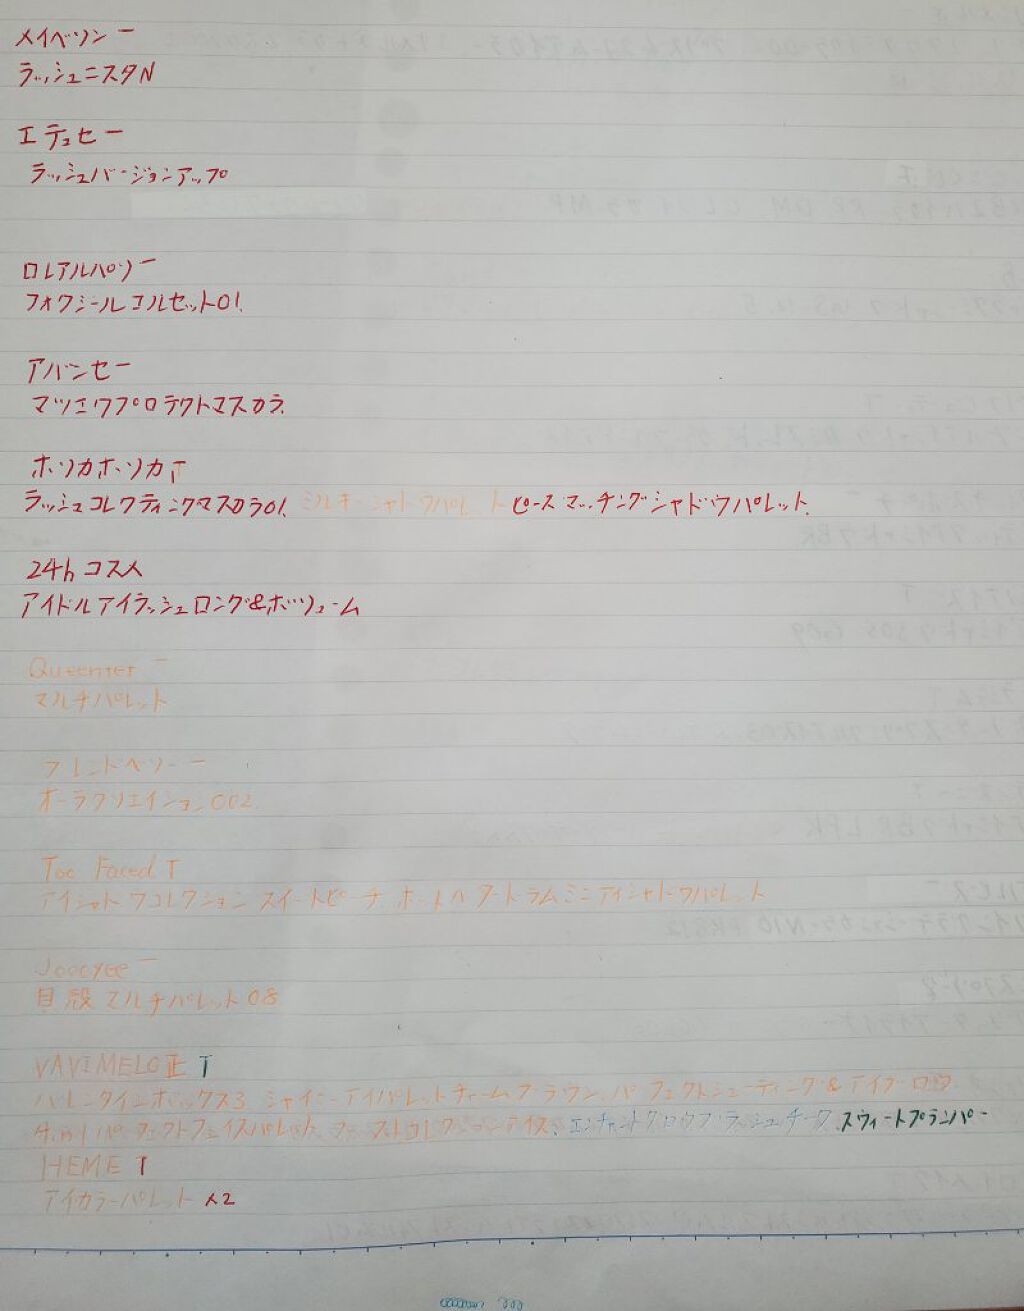 メイベリン 一
ラッシュニスタN
エテュセ 一
ラッシュバージョンアップ
ロレアルパリ 一
フォクシールコルセット01.
アバンセ 一
マツエクプロテクトマスカラ.
ホリカホリカ T
ラッシュコレクティングマスカラ01. ミルキーシャドウパレット ピースマッチングシャドウパレット.
24hコスメ
アイドルアイラッシュロング&ボリューム
Queenier 一
マルチパレット
フレンドベリー 一
オーラクリエイション002.
Too Faced T
アイシャドウコレクション スイートピーチ ミニアイシャドウパレット
Joocyee 一
貝殻マルチパレット08
VAVIMELO 正 T
バレンタインボックス3 シャイニーアイパレットチャームブラウン. パーフェクトシューティング&アイブロウ
パーフェクトフェイスパレット. エンチャントグロウブラッシュチーク. スウィートプランパー
HEME T
アイカラーパレット ×2